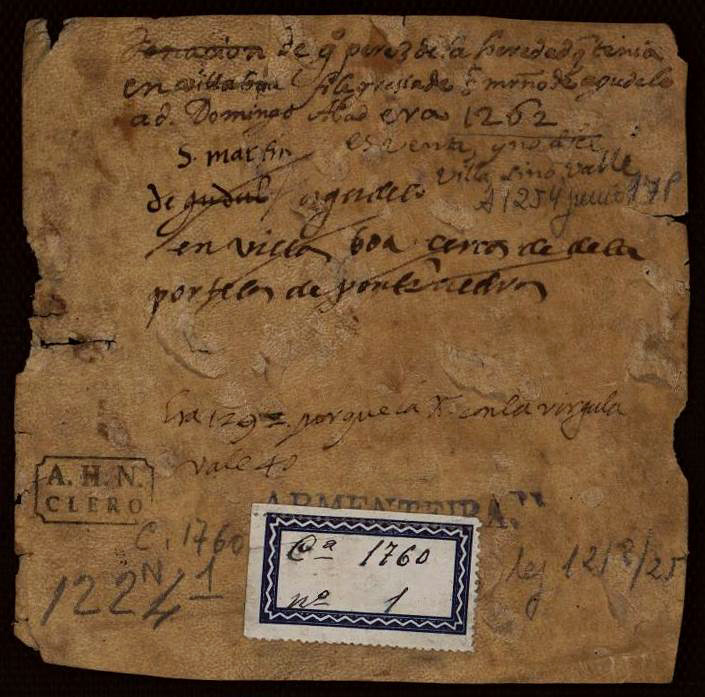 Donacion de gº perez de la heredad q tenia
en villaboa filegresia de S. mrño de agudelo
a d. Domingo Abad era 1262
S. martin es venta, y no dice
de agudelo Villa sino Valle
A 1254 junio 178
en villa boa cerca de dela
portela de pontevedra
Era 1292. porque la X. con la virgula
vale 40
A. H. N.
CLERO
ARMENTEIRA
C. 1760
N. 1
1224
Cª 1760
nº 1
leg 1218/25